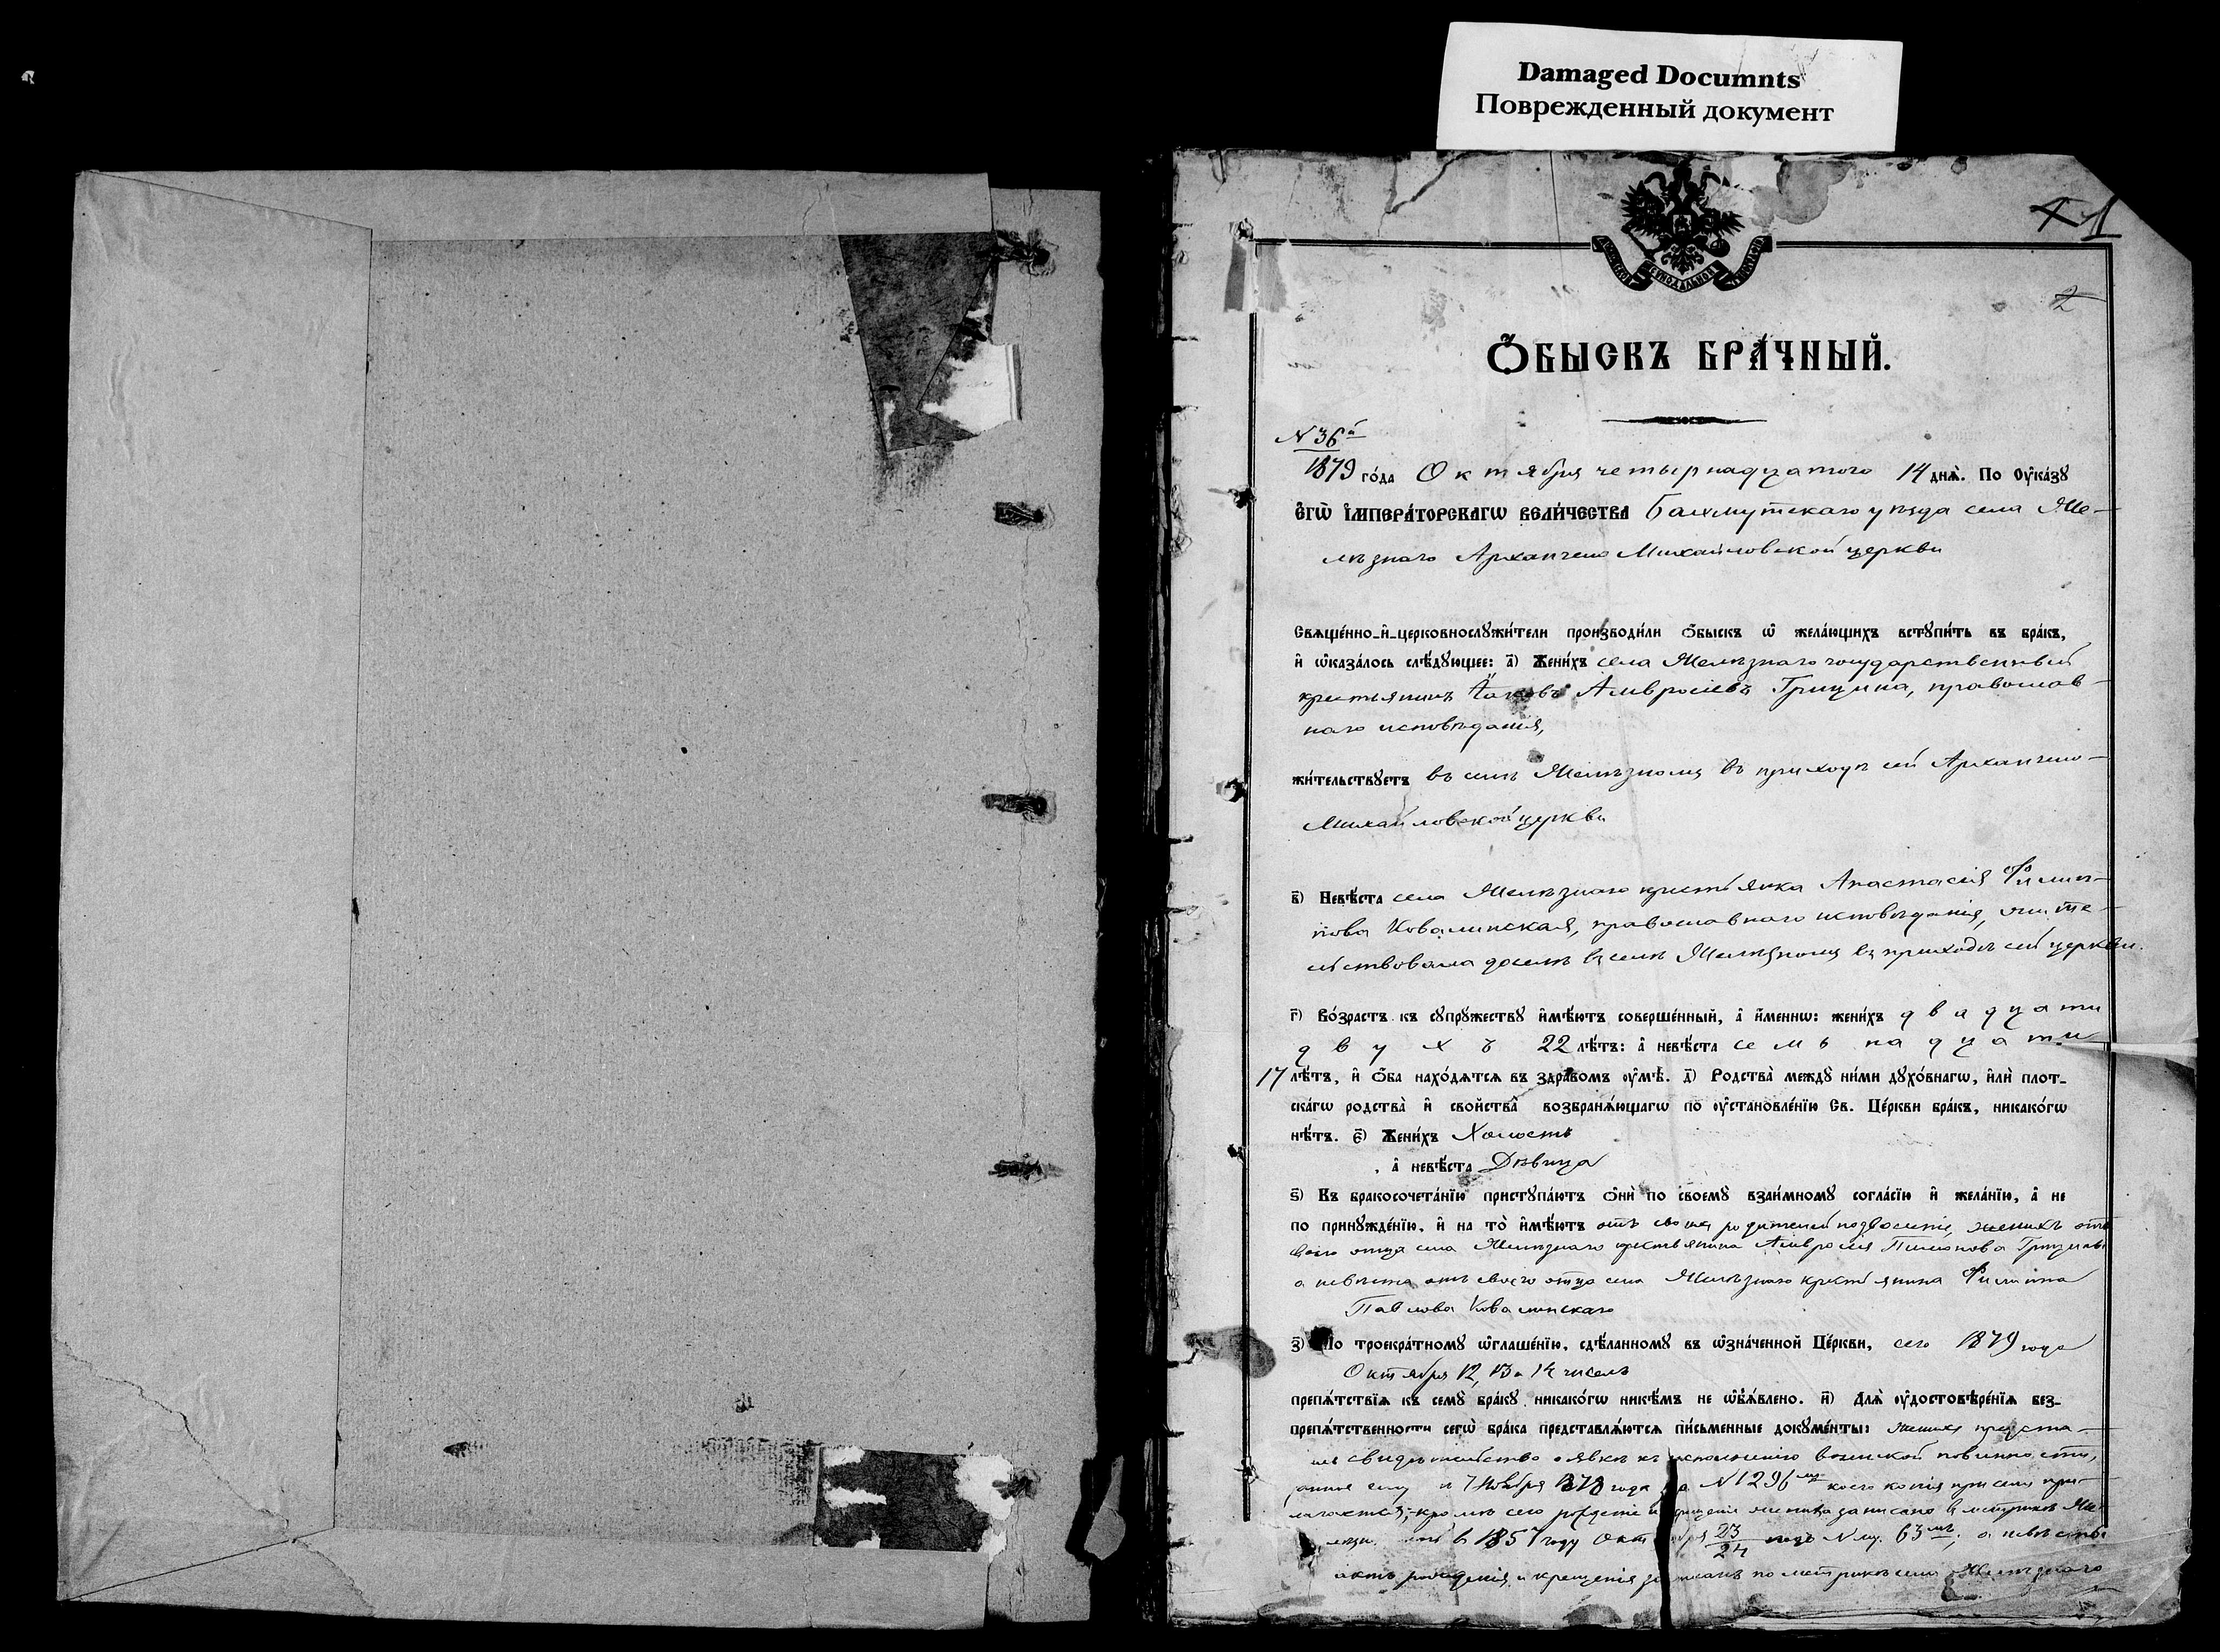 Damaged Documnts
Поврежденный документ
1
2
Ѻ҆БЫСКЪ БРА́ЧНЫЙ.
N 36й
1879 го́да Октября четырнадцатого 14 днѧ̀. По Оу҆ка́зꙋ
Е҆гѡ̀ І҆мпера́торскагѡ вели́чества Бахмутскаго уѣзда села Же-
лѣзнаго Архангело Михайловской церкви
Свѧще́нно-и҆-церковнослꙋжи́тели производи́ли ѻ҆быскъ ѡ҆ жела́ющихъ встꙋпи́ть въ бра́къ,
и҆ ѡ҆каза́лось слѣ́дꙋющее: а҃) Жени́хъ села Желѣзнаго государственный
крестьянинъ Іаковъ Амвросіевъ Грицина, православ-
наго исповѣданія,
жи́тельствꙋетъ въ селѣ Желѣзномъ въ приходѣ сей Архангело-
Михайловской церкви
в҃) Невѣ́ста села Желѣзнаго крестьянка Анастасія Филип-
пова Ковалинская, православнаго исповѣданія, жите-
льствовала доселѣ въ селѣ Желѣзномъ въ приходѣ сей церкви.
г҃) Во́зрастъ къ сꙋпрꙋжествꙋ и҆мѣ́ютъ соверше́нный, а҆ и҆́меннѡ: жени́хъ двадцати
двухъ 22 лѣ́тъ: а҆ невѣ́ста семьнадцати
17 лѣ́тъ, и҆ ѻ҆́ба нахо́дѧтсѧ въ здра́вомъ оу҆мѣ̀. д҃) Родства̀ междꙋ̀ ни́ми дꙋхо́внагѡ, и҆лѝ плот-
ска́гѡ родства̀ и҆ свойства̀ возбранѧ́ющагѡ по оу҆становле́нїю Св. Це́ркви бра́къ, никако́гѡ
нѣ́тъ. є҃) Жени́хъ Холостъ
, а҆ невѣ́ста Дѣвица
ѕ҃) Къ бракосочета́нїю пристꙋпа́ютъ ѻ҆нѝ по своемꙋ̀ взаи́мномꙋ согла́сїю и҆ жела́нїю, а҆ не
по принꙋжде́нїю, и҆ на то̀ и҆мѣ́ютъ отъ своихъ родителей позволеніе, женихъ отъ
своего отца села Желѣзнаго крестьянина Амвросія Пименова Грицины
а невѣста отъ своего отца села Желѣзнаго крестьянина Филиппа
Павлова Ковалинскаго
з҃) По троекра́тномꙋ ѡ҆глаше́нїю, сдѣ́ланномꙋ въ ѡ҆зна́ченной Це́ркви, сего 1879 года
Октября 12, 13 и 14 чиселъ
препѧ́тствїѧ къ семꙋ̀ бра́кꙋ никако́гѡ никѣ́мъ не ѡ҆б̾ѧ́влено. и҃) Длѧ̀ оу҆достовѣ́ре́нїѧ без-
препѧ́тственности сегѡ̀ бра́ка представлѧ́ютсѧ пи́сьменные докꙋме́нты: женихъ предста-
свидѣтельство о явкѣ къ исполненію воинской повинности,
данное ему 7 Ноября 1878 года N 1296 коего копія при семъ при-
лагается, кромѣ сего рожденіе и крещеніе жениха записано въ метрикѣ Же-
въ 1857 году Октября 23/24 подъ N му. 63мъ, а невѣсты
актъ рожденія и крещенія записанъ по метрикѣ села Желѣзнаго